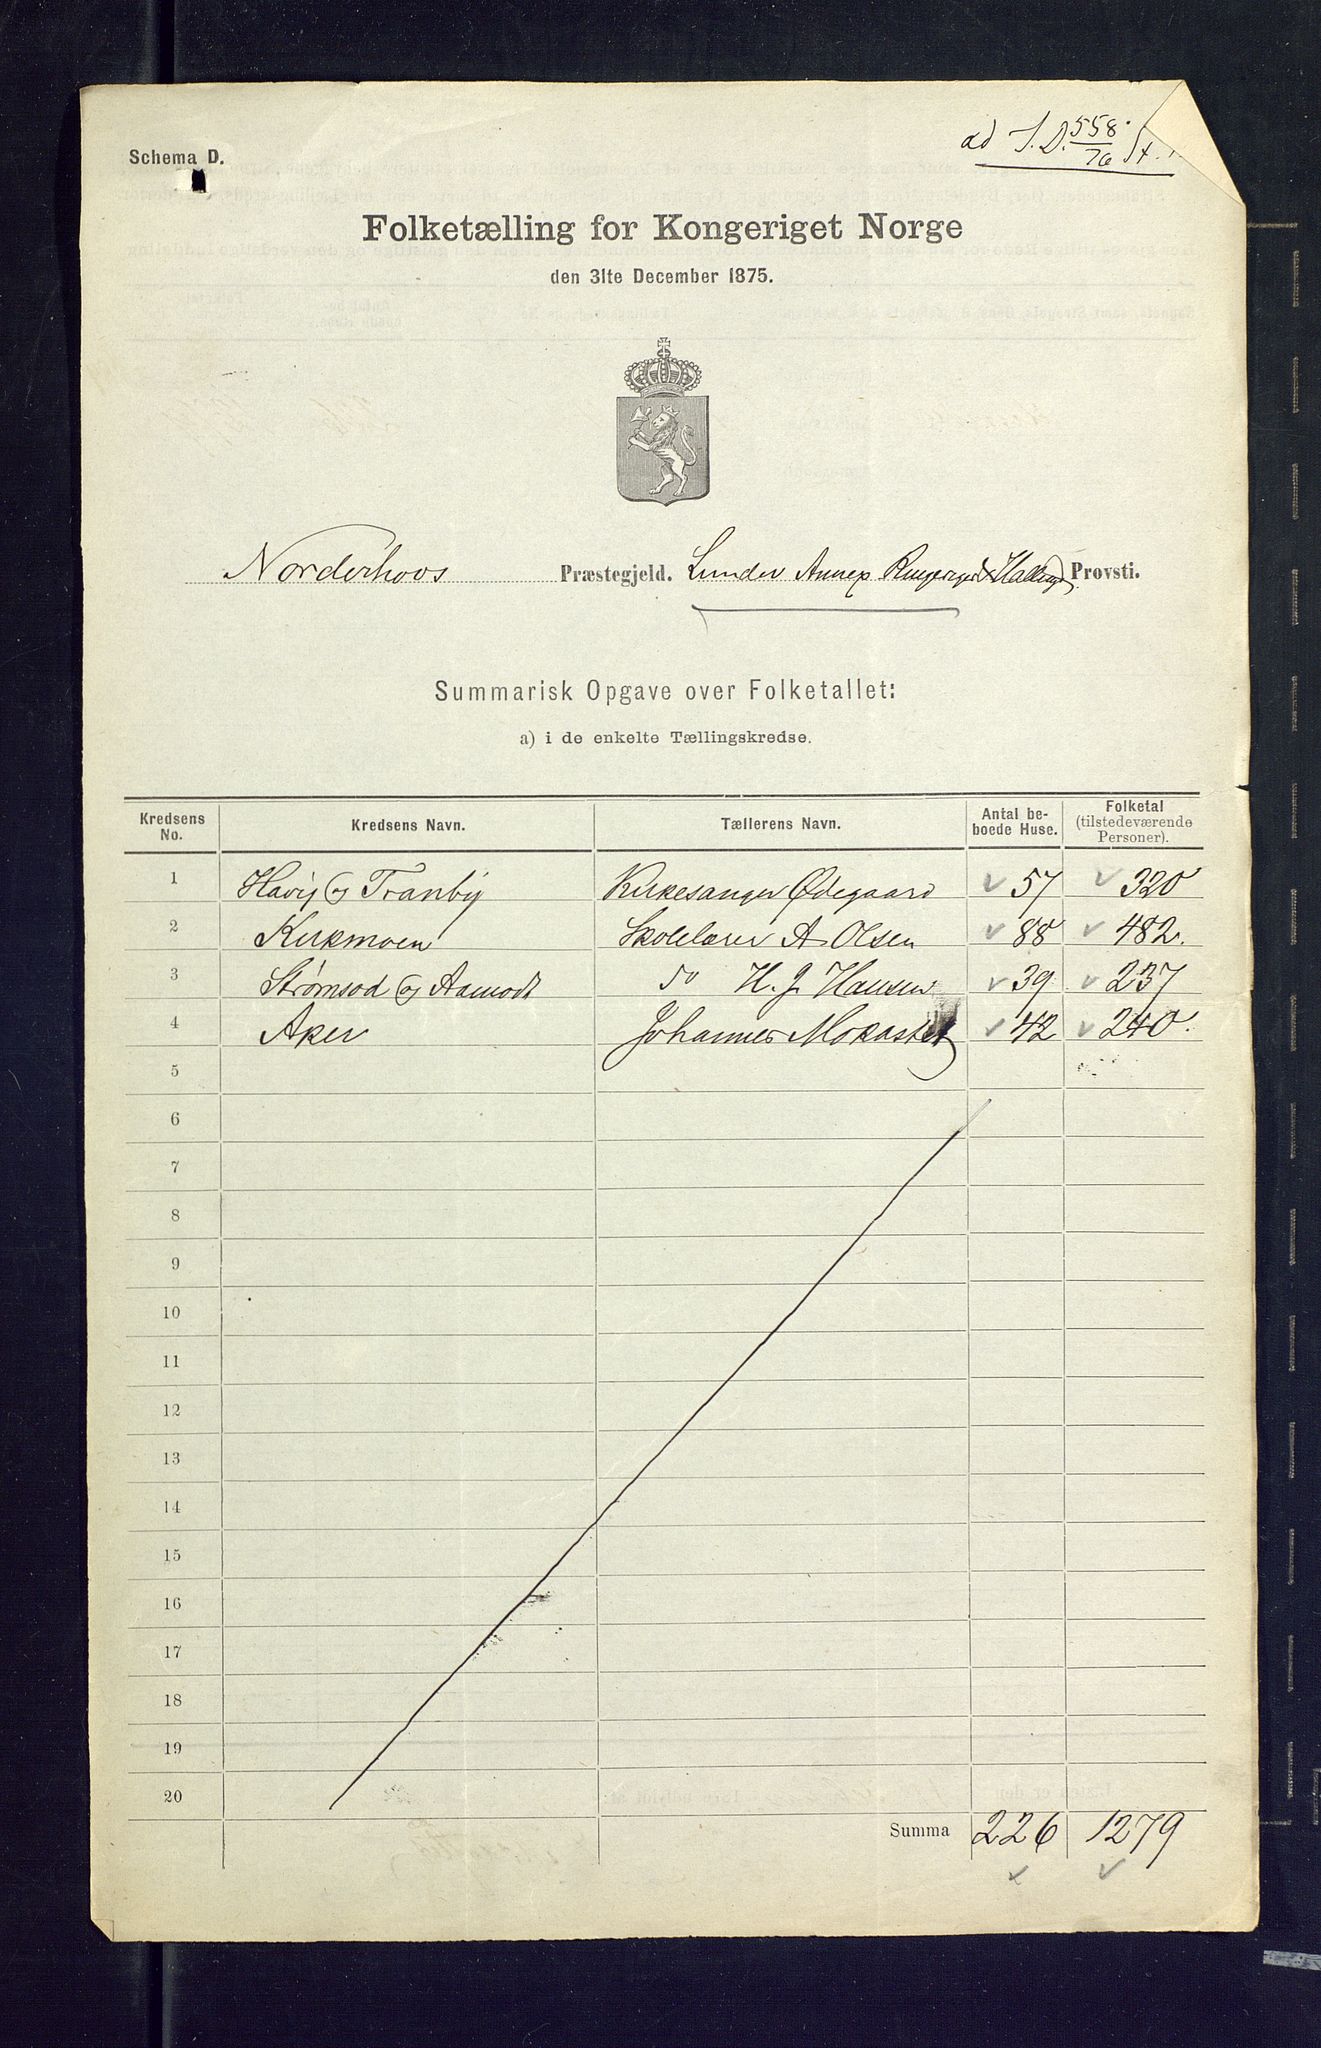 ad J. D. 558/76 St.
Schema D.
Folketælling for Kongeriget Norge
den 31te December 1875.
Norderhovs Præstegjeld. Lunder Annex Ringeriges & Hallings Provsti.
Summarisk Opgave over Folketallet:
a) i de enkelte Tællingskredse.
Kredsens No. Kredsens Navn. Tællerens Navn. Antal be- boede Huse. Folketal (tilstedeværende Personer).
1 Havig og Tranby Kirkesanger Ødegaard 57 320
2 Kirkmoen Skolelærer A Olsen 88 482.
3 Strømsod og Aamodt do H. J. Hansen 39 237
4 Aker Johannes Mokastet 42 240.
5
6
7
8
9
10
11
12
13
14
15
16
17
18
19
20
Summa 226 1279